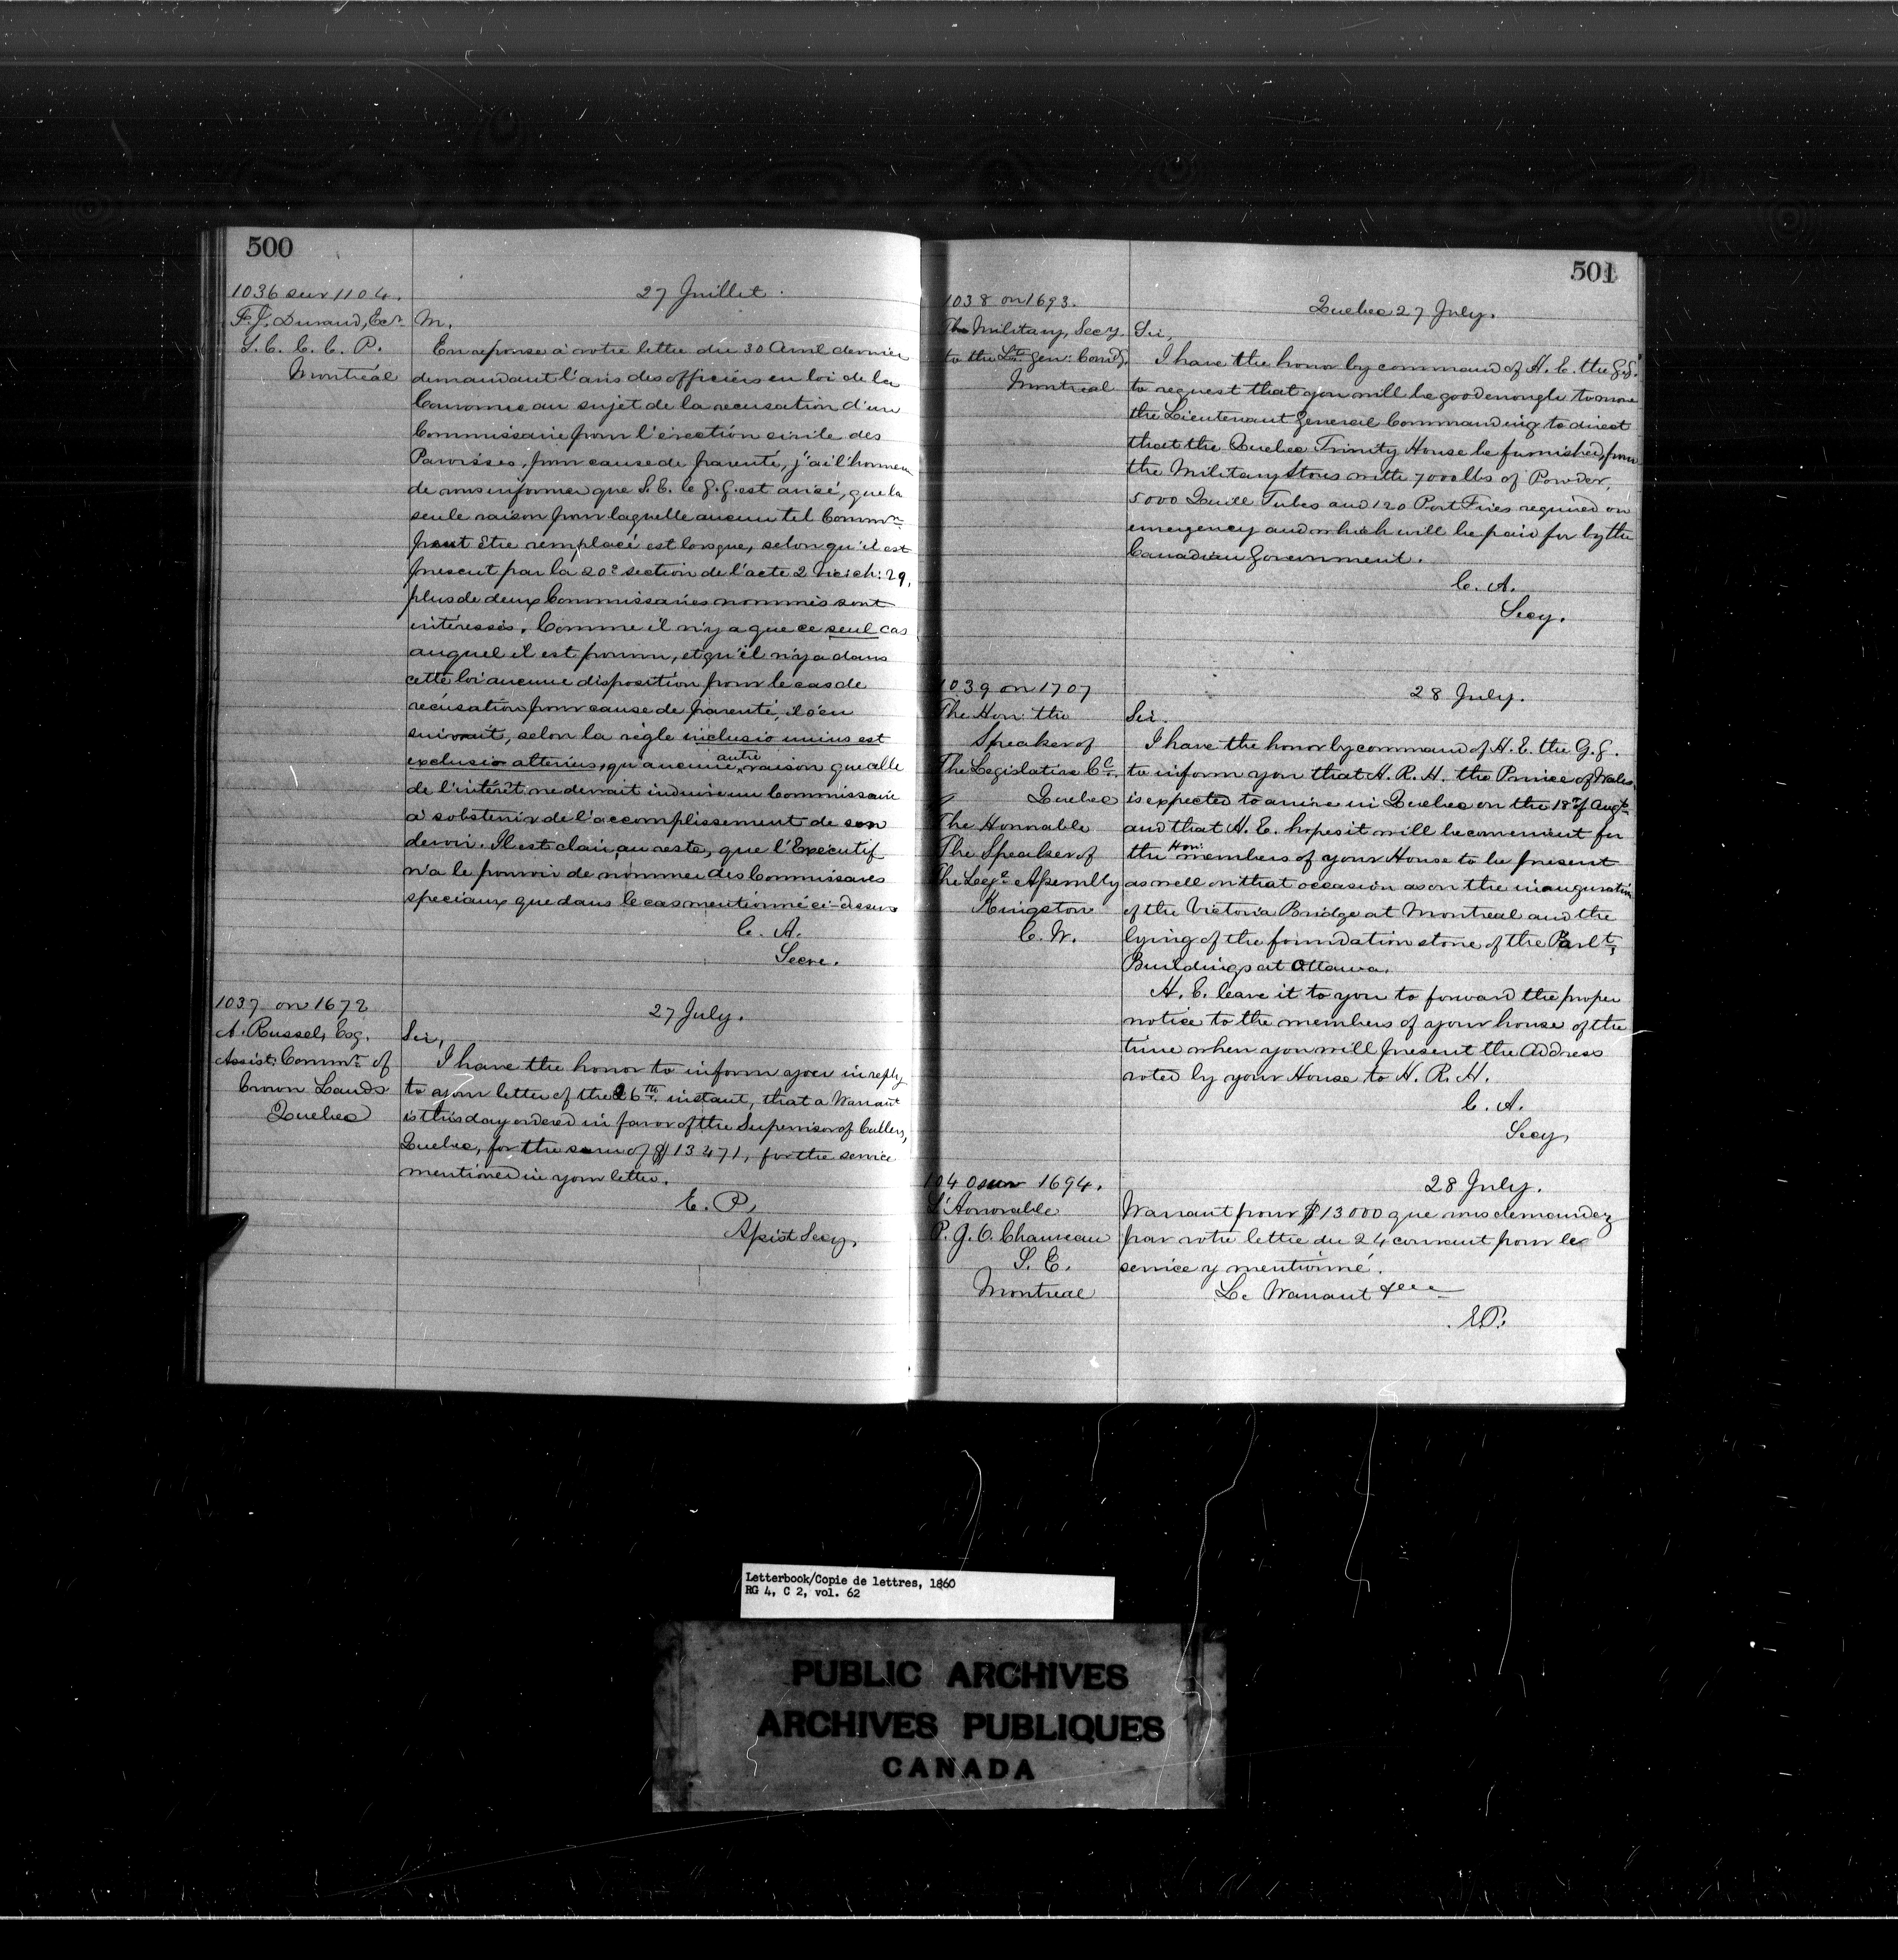 500
1036 sur 1104.
F. J. Durand, Ecr
S. C. C. C. P.
Montréal
27 Juillet.
M.
En reponse à votre lettre du 30 Avril dernier
demandant l'avis des officiers en loi de la
Couronne au sujet de la recusation d'un
Commissaire pour l'érection civile des
Paroisses, pour cause de parenté, j'ai l'honneur
de vous informer que S. E. le G. G. est avisé, que la
seule raison pour laquelle aucun tel Commre
peut être remplacé est lorsque, selon qu'il est
prescrit par la 20e section de l'acte 2 Vic: ch: 29,
plus de deux Commissaires nommés sont
intéressés. Comme il n'y a que ce seul cas
auquel il est pourvu, et qu'il n'y a dans
cette loi aucune disposition pour le cas de
récusation pour cause de parenté, il s'en
suivrait, selon la règle inclusio unius est
exclusio alterius, qu'aucune autre raison que celle
de l'intérêt ne devrait induire un Commissaire
à s'obstenir de l'accomplissement de son
devoir. Il est clair, au reste, que l'Executif
n'a le pouvoir de nommer des Commissaires
speciaux que dans le cas mentionné ci-dessus
C. A.
Secre.
1037 on 1672
A. Russel, Esq.
Assist: Commr of
Crown Lands
Quebec
27 July.
Sir,
I have the honor to inform you in reply
to your letter of the 26th instant, that a Warrant
is this day ordered in favor of the Supervisor of Cullers,
Quebec, for the sum of $13471, for the service
mentioned in your letter.
E. P.
Assist Secy.
501
1038 on 1693.
The Military, Secy
to the Lt. Gen: Comdg.
Montreal
Quebec 27 July.
Sir,
I have the honor by command of H. E. the G.G.
to request that you will be good enough to move
the Lieutenant General Commanding to direct
that the Quebec Trinity House be furnished, from
the Military Stores with 7000 lbs of Powder,
5000 Quill Tubes and 120 Port Fires required on
emergency and which will be paid for by the
Canadian Government.
C. A.
Secy.
1039 on 1707
The Hon: the
Speaker of
The Legislative Cl.
Quebec
The Honorable
The Speaker of
The Lege Assembly
Kingston
C. W.
28 July.
Sir.
I have the honor by command of H. E. the G. G.
to inform you that H. R. H. the Prince of Wales
is expected to arrive in Quebec on the 18th of Augt.
and that H. E. hopes it will be convenient for
the Hon: members of your House to be present
as well on that occasion as on the inauguration
of the Victoria Bridge at Montreal and the
lying of the foundation stone of the Parlt.
Buildings at Ottawa.
H. E. leave it to you to forward the proper
notice to the members of your house of the
time when you will present the Address
voted by your House to H. R. H.
C. A.
Secy,
1040 sur 1694.
L'Honorable
P. J. O. Chauveau
S. E.
Montreal
28 July.
Warrant pour $13000 que vous demandez
par votre lettre du 24 courant pour le
service y mentionné.
Le Warrant &c
E.P.
Letterbook/Copie de lettres, 1860
RG 4, C 2, vol. 62
PUBLIC ARCHIVES
ARCHIVES PUBLIQUES
CANADA